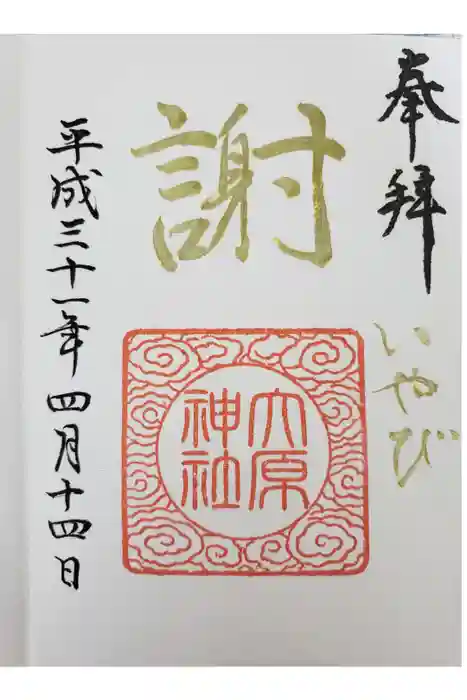 奉拝
いやび
謝
大原
神社
平成三十一年四月十四日